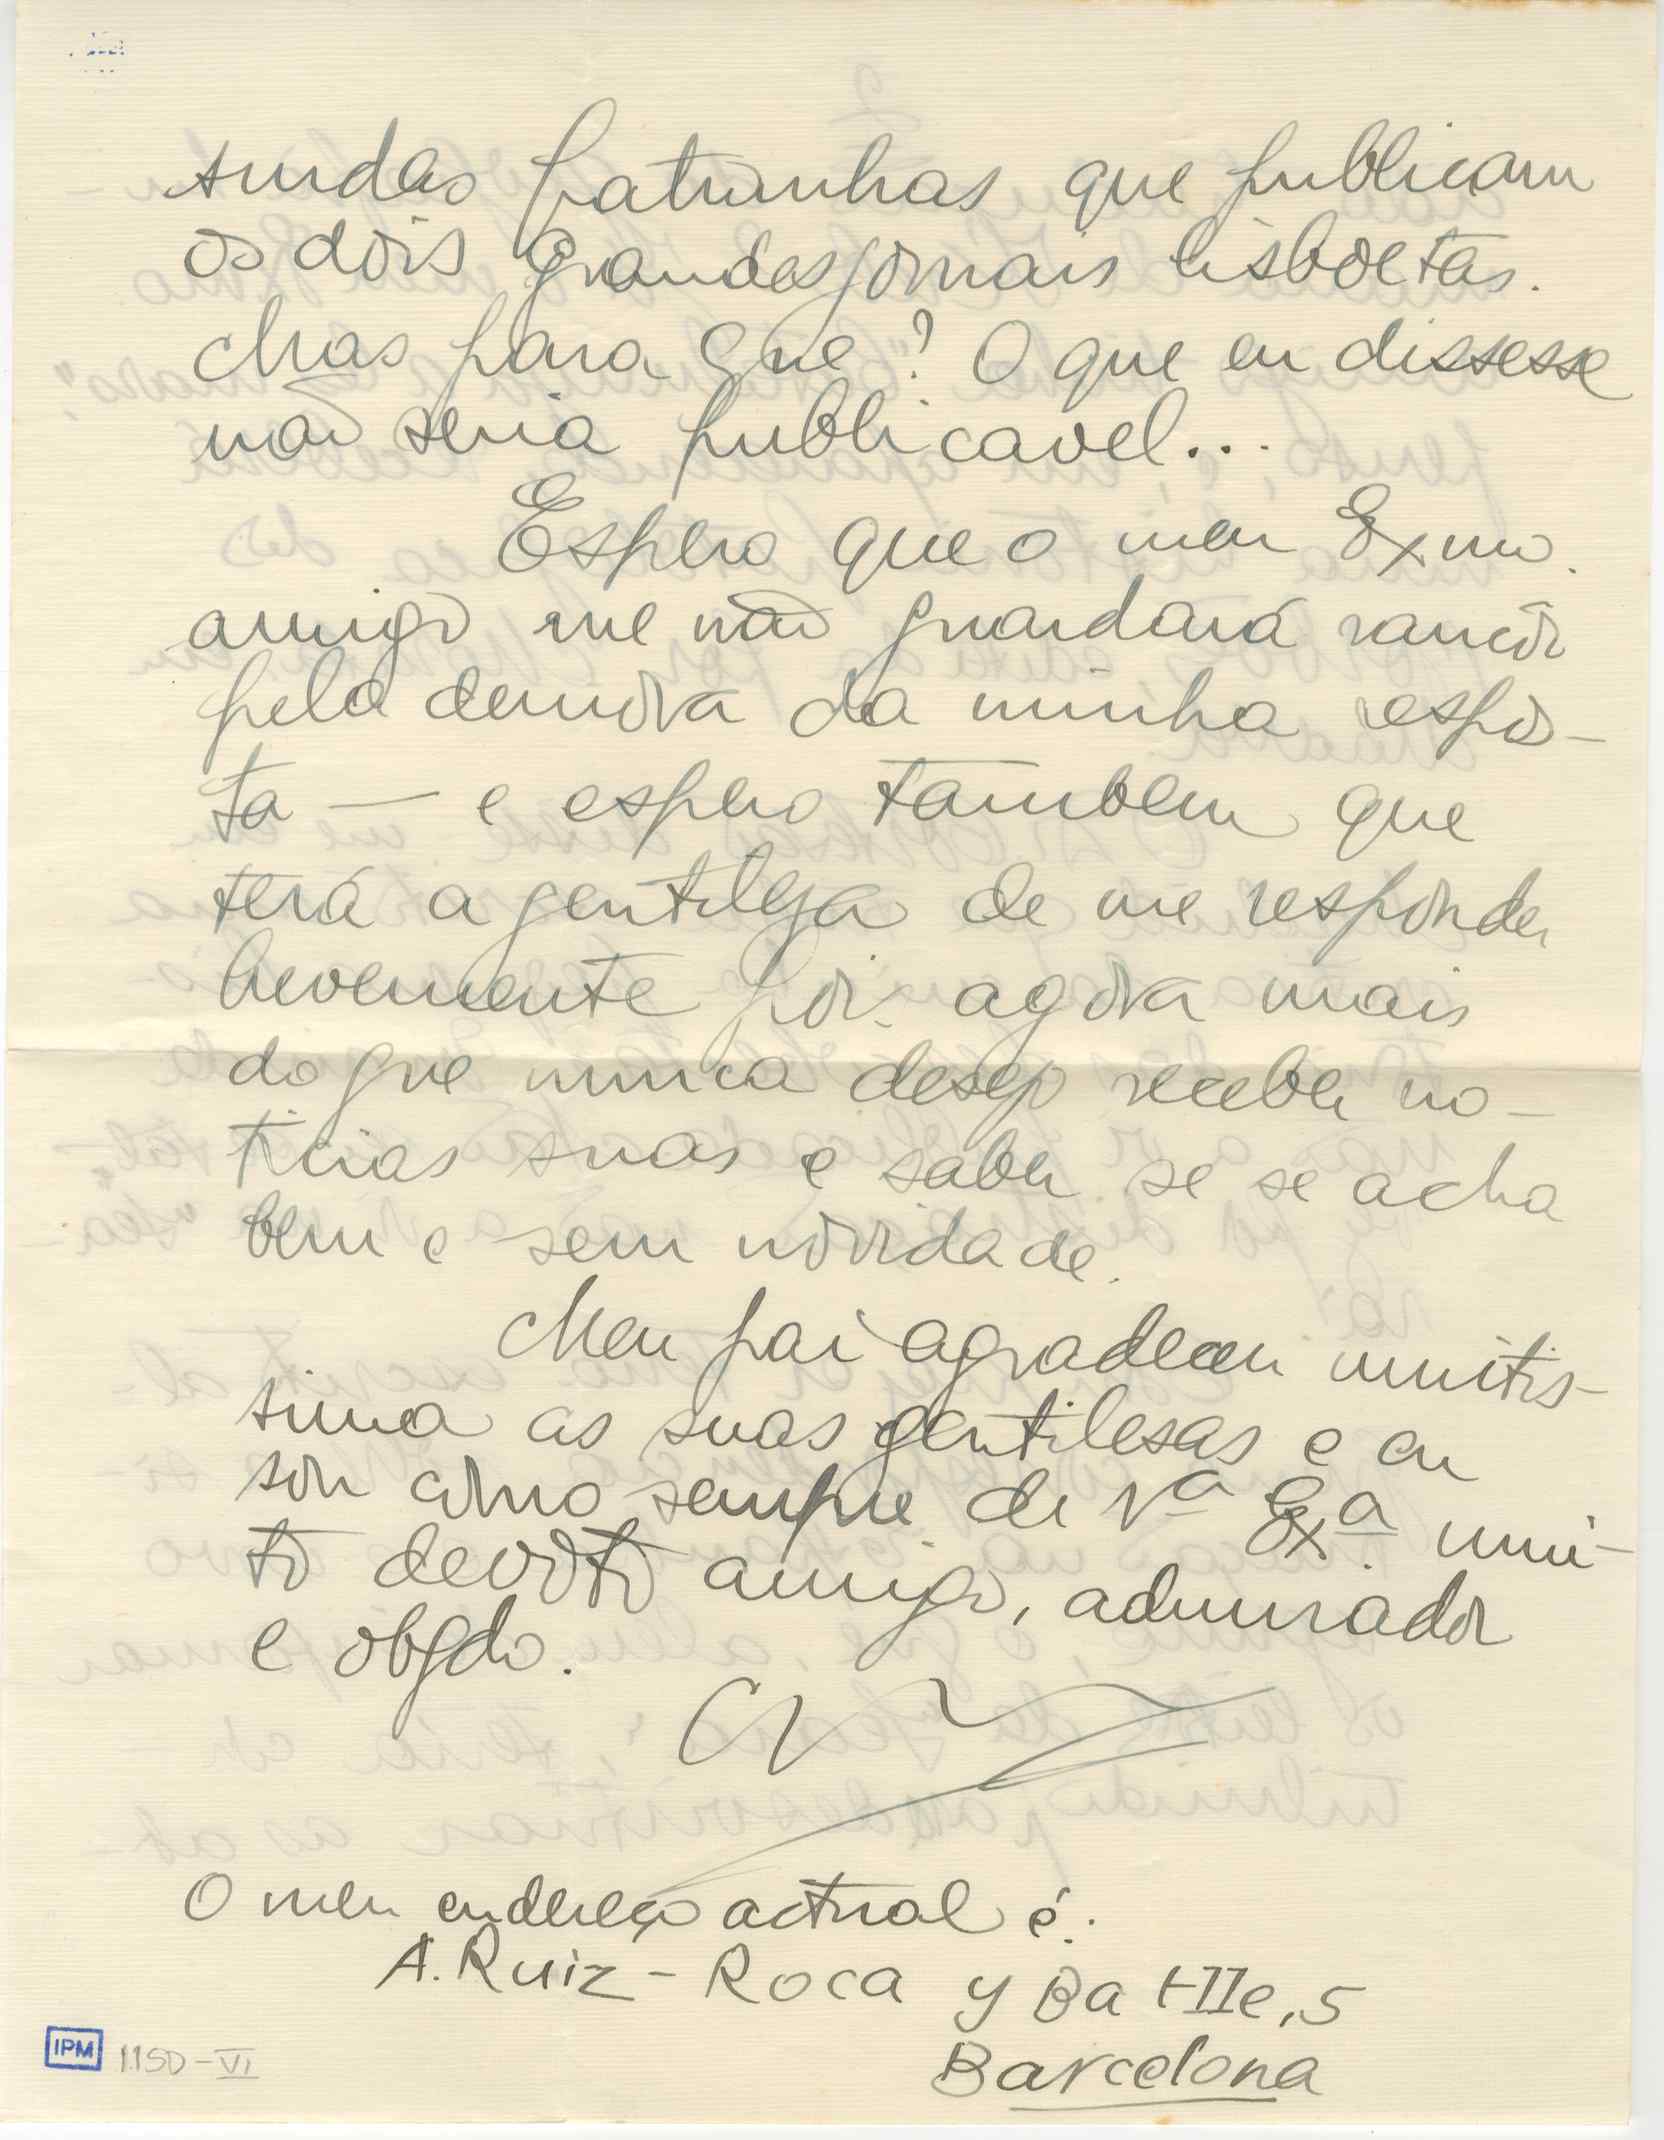 surdas patranhas que publicam
os dois grandes jornais lisboetas.
Mas para que? O que eu dissesse
não seria publicavel...
Espero que o meu Exmo.
amigo me não guardará rancôr
pela demora da minha respos-
ta — e espero tambem que
terá a gentileza de me responder
brevemente pois agora mais
do que nunca desejo receber no-
ticias suas e saber se se acha
bem e sem novidade.
Meu pai agradeceu muitis-
sima as suas gentilesas e eu
sou como sempre de Vª Exª. mui-
to devoto amigo, admirador
e obgdo.
O meu endereço actual é:
A. Ruiz - Roca y Batlle, 5
Barcelona
IPM 1150-VI